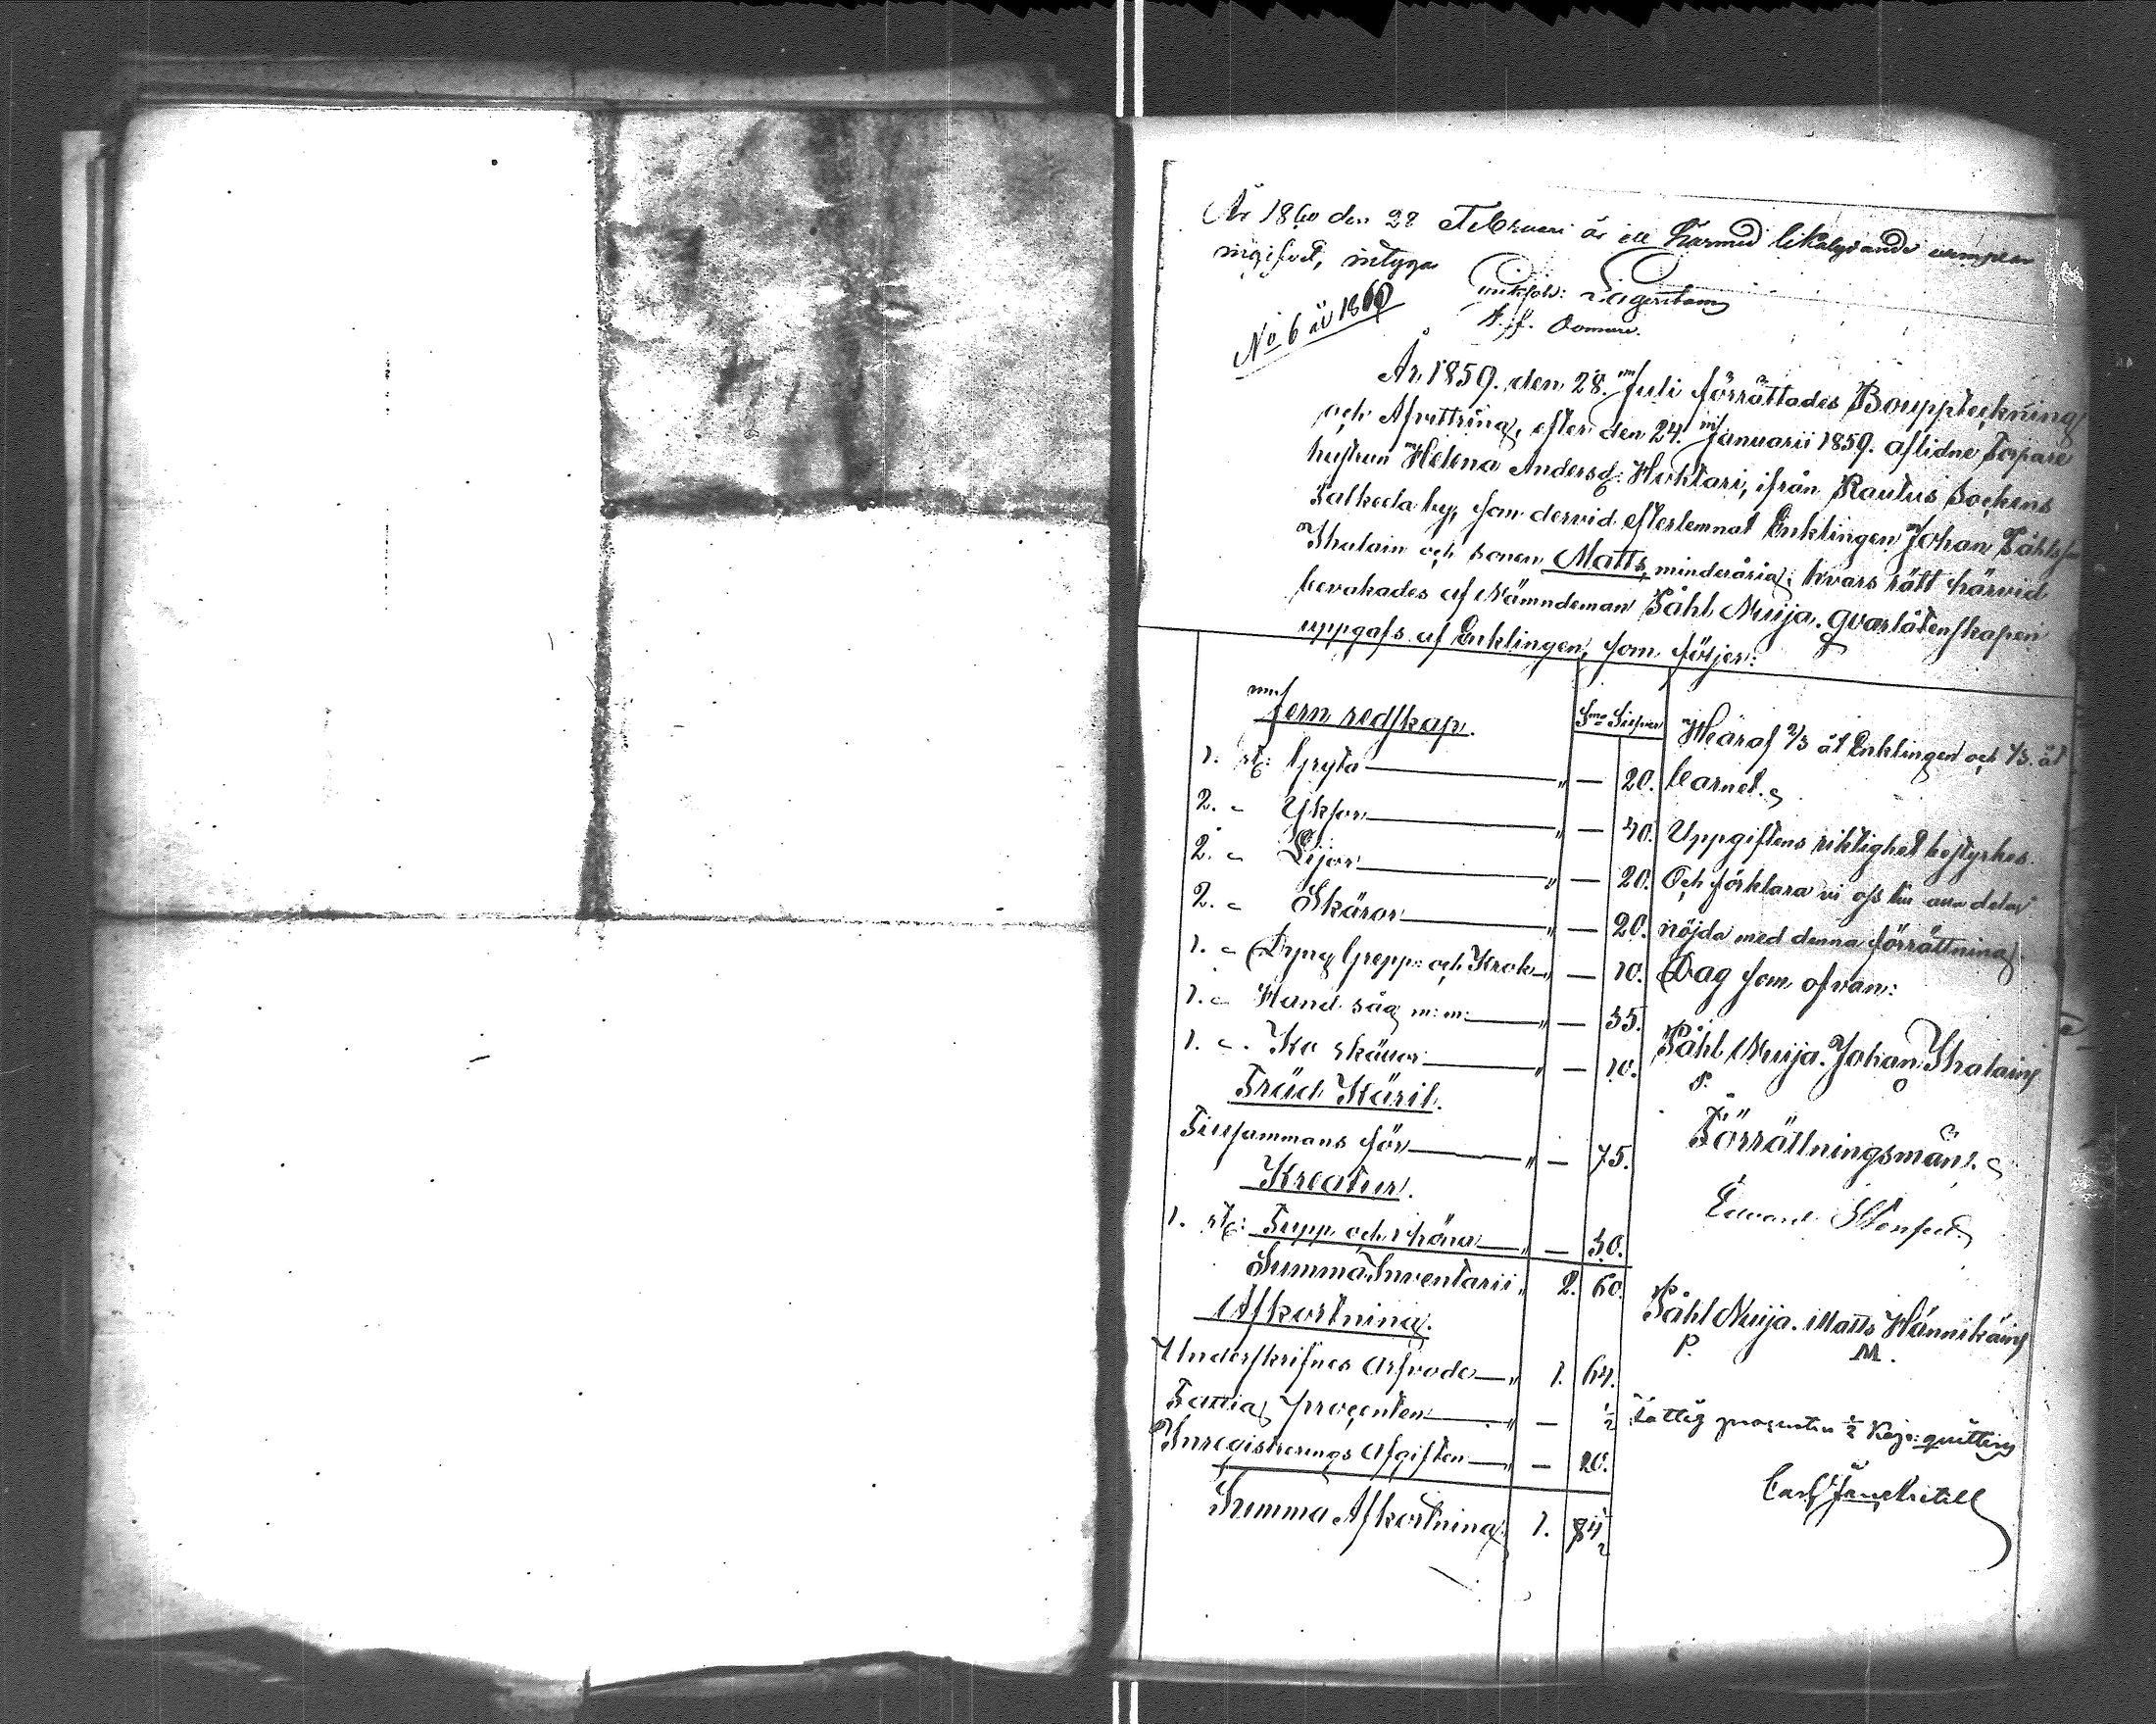 År 1860 den 28 Februari är ett härmed likalydande exemplar
ingifvet, intygar
Lagerstam
t. f. Domare.
No 6 år 1860
År 1859. den 28. Juli förrättades Bouppteckning
och Afvittring, efter den 24. Januarii 1859. aflidne Torpare
hustrun Helena Andersd: Huhtari, ifrån Rautus Sockens
Palkeela by, som dervid efterlemnat Enklingen Johan Påhlsson
Ihalain och sonen Matts, minderårig; hvars rätt härvid
bevakades af Nämndeman Påhl Nuija. Qvarlåtenskapen
uppgafs af Enklingen, som följer:
Jern redskap.
Smt Silfver
1. st: Gryta — " — 20.
2. " Yxor — " — 40.
2. " Lijor — " — 20.
2. " Skäror — " — 20.
1. " Dyng Grepp: och Krok — " — 10.
1. " Hand såg m: m: — " — 35.
1. " Ko skällor — " — 10.
Träd Käril.
Tillsammans för — " — 75.
Kreatur.
1. st: Tupp och höna — " — 30.
Summa Inventarii " 2. 60.
Afkortning.
Underskrifnes Arfvode — " 1. 64.
Fattig procenten — " — ½
Inregistrerings Afgiften — " — 20.
Summa Afkortning 1. 84 ½
Häraf 2/3 åt Enklingen och 1/3. åt
barnet.
Uppgiftens riktighet bestyrkes.
Och förklara vi oss till alla delar
nöjda med denna förrättning
Dag som ofvan:
Påhl Nuija. Johan Ihalain
P.
Förrättningsmän:
Edvard
Påhl Nuija. Matts Hännikäin
P. M.
Fattig procenten ½ Kop: quitteras
Carl